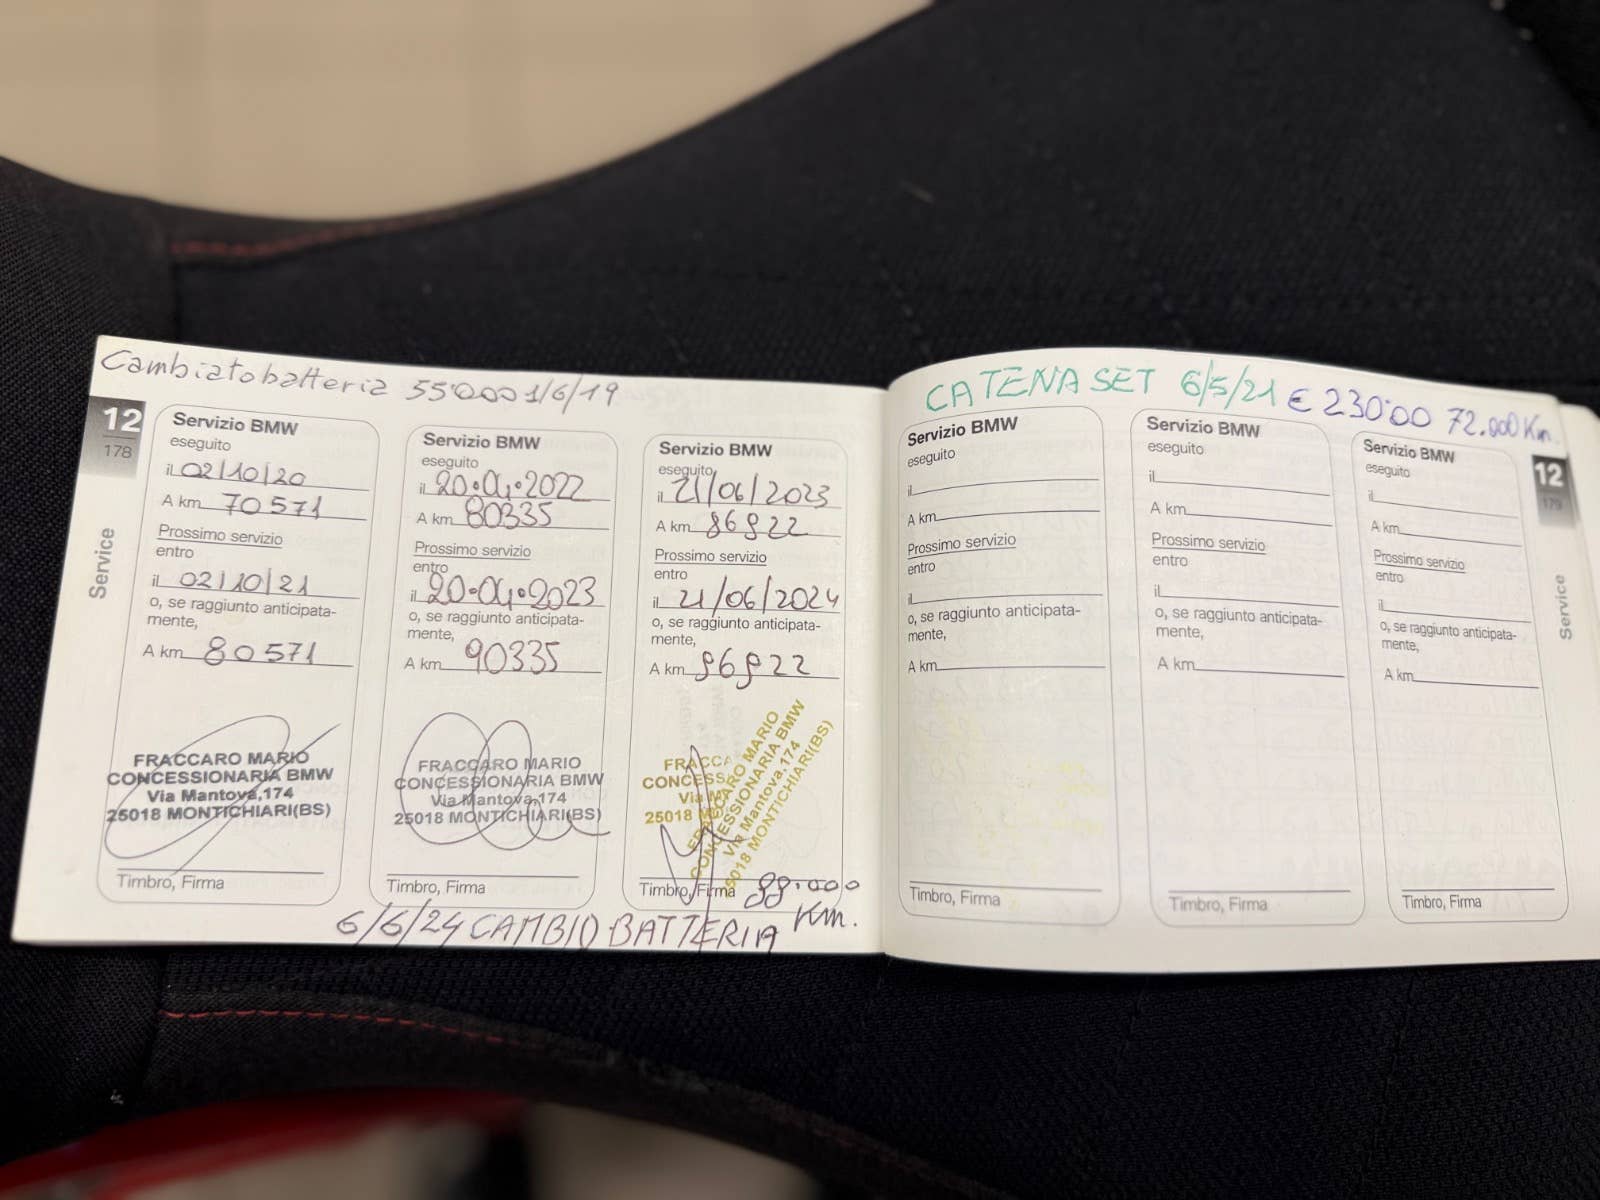 Cambiato batteria 55'000 1/6/19
12
178
Service
Servizio BMW
eseguito
il 02/10/20
A km 70571
Prossimo servizio
entro
il 02/10/21
o, se raggiunto anticipata-
mente,
A km 80571
FRACCARO MARIO
CONCESSIONARIA BMW
Via Mantova,174
25018 MONTICHIARI(BS)
Timbro, Firma
Servizio BMW
eseguito
il 20.04.2022
A km 80335
Prossimo servizio
entro
il 20.04.2023
o, se raggiunto anticipata-
mente,
A km 90335
FRACCARO MARIO
CONCESSIONARIA BMW
Via Mantova,174
25018 MONTICHIARI(BS)
Timbro, Firma
Servizio BMW
eseguito
il 21/06/2023
A km 86922
Prossimo servizio
entro
il 21/06/2024
o, se raggiunto anticipata-
mente,
A km 96922
FRACCA
CONCESSA
Via
25018
FRACCARO MARIO
CONCESSIONARIA BMW
Via Mantova,174
25018 MONTICHIARI(BS)
Timbro, Firma
88.000
Km.
6/6/24 CAMBIO BATTERIA
CATENA SET 6/5/21 € 230'00 72.000 Km.
12
179
Service
Servizio BMW
eseguito
il
A km
Prossimo servizio
entro
il
o, se raggiunto anticipata-
mente,
A km
Timbro, Firma
Servizio BMW
eseguito
il
A km
Prossimo servizio
entro
il
o, se raggiunto anticipata-
mente,
A km
Timbro, Firma
Servizio BMW
eseguito
il
A km
Prossimo servizio
entro
il
o, se raggiunto anticipata-
mente,
A km
Timbro, Firma